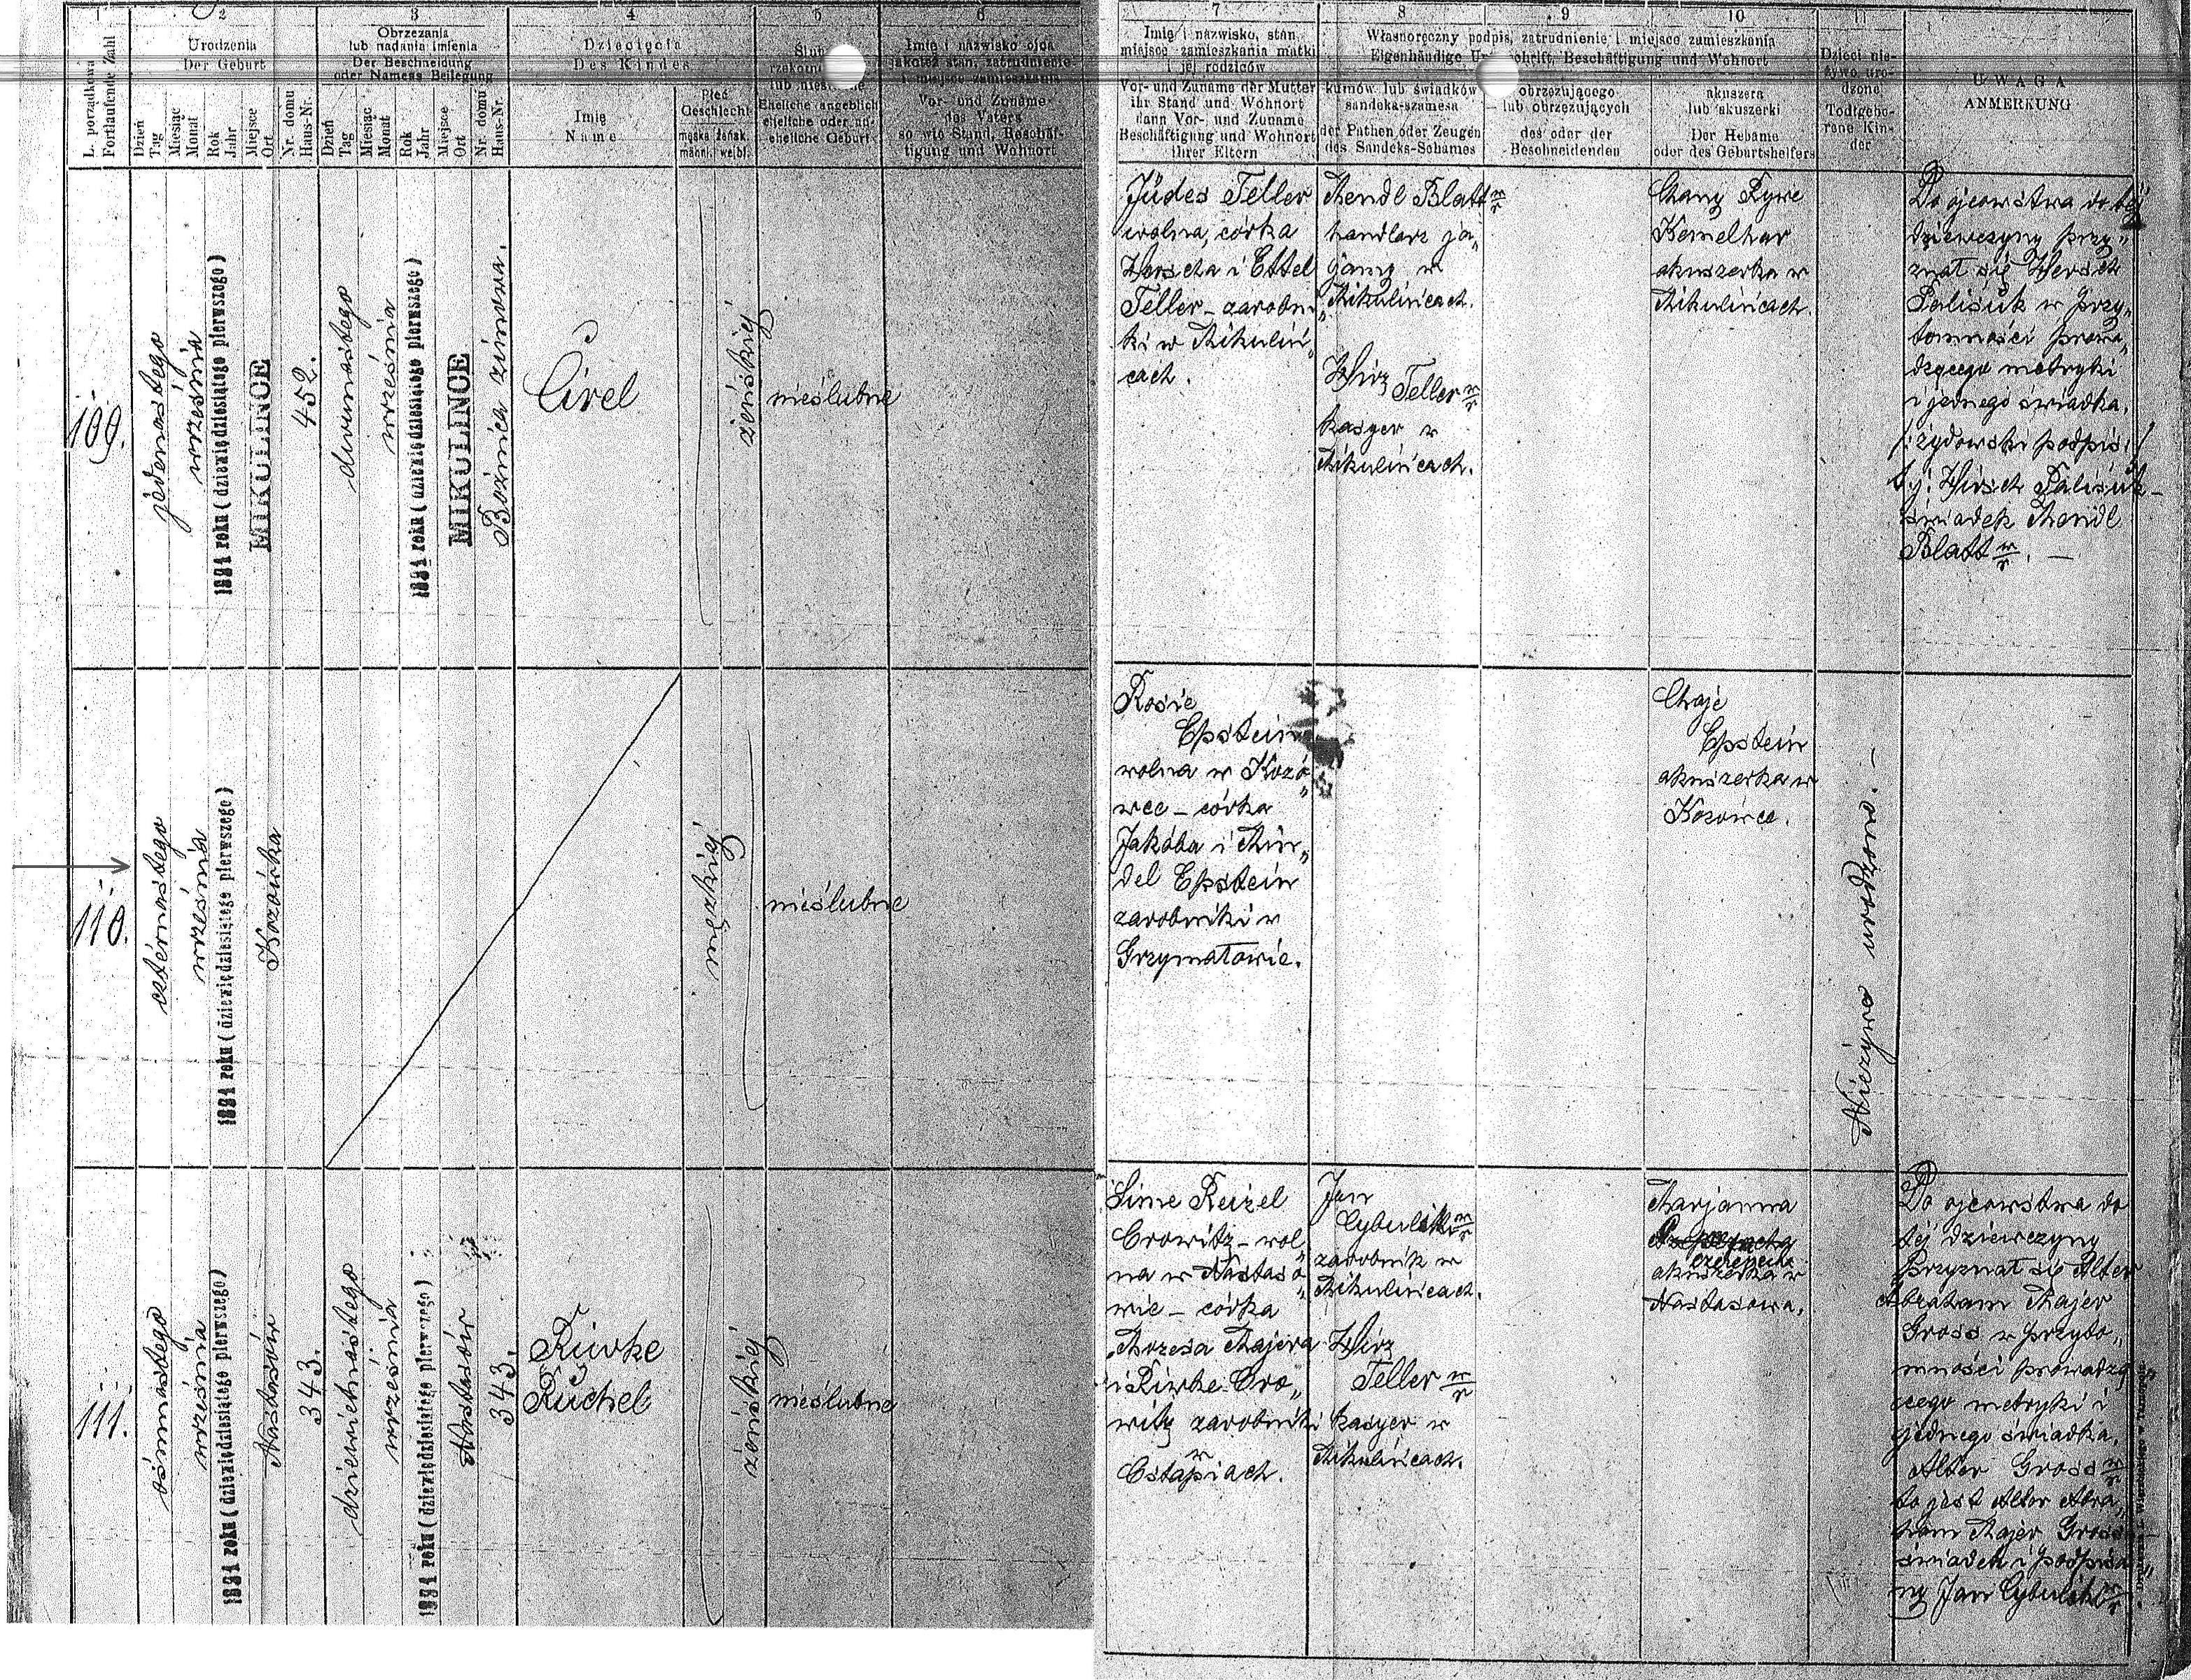 1
2
3
4
5
6
7
8
9
10
11
L. porządkowa
Fortlaufende Zahl
Urodzenia
Der Geburt
Dzień
Tag
Miesiąc
Monat
Rok
Jahr
Miejsce
Ort
Nr. domu
Haus-Nr.
Obrzezania
lub nadania imienia
Der Beschneidung
oder Namens Beilegung
Dzień
Tag
Miesiąc
Monat
Rok
Jahr
Miejsce
Ort
Nr. domu
Haus-Nr.
Dziecięcia
Des Kindes
Imię
Name
Płeć
Geschlecht
męska żeńsk.
männl. weibl.
Eheliche angeblich
eheliche oder un-
eheliche Geburt
Imię i nazwisko ojca
jakoteż stan, zatrudnienie
i miejsce zamieszkania
Vor- und Zuname
des Vaters
so wie Stand, Beschäf-
tigung und Wohnort
Imię i nazwisko, stan,
miejsce zamieszkania matki
i jej rodziców
Vor- und Zuname der Mutter
ihr Stand und Wohnort
dann Vor- und Zuname
Beschäftigung und Wohnort
ihrer Eltern
Własnoręczny podpis, zatrudnienie i miejsce zamieszkania
Eigenhändige Unterschrift, Beschäftigung und Wohnort
kumów lub świadków
sandeka-szamesa
der Pathen oder Zeugen
des Sandeks-Schames
obrzezującego
lub obrzezujących
des oder der
Beschneidenden
akuszera
lub akuszerki
Der Hebame
oder des Geburtshelfers
Dzieci nie-
żywo uro-
dzone
Todtgebo-
rene Kin-
der
UWAGA
ANMERKUNG
109.
jedenastego
września
1891 roku (dziewiędziesiątego pierwszego)
MIKULINCE
452.
dwunastego
września
1891 roku (dziewiędziesiątego pierwszego)
MIKULINCE
Bożnica zimowa.
Cirel
żeńskiej
nieślubne
Jüdes Teller
wolna, córka
Herscha i Ettel
Teller – zarobni
ki w Mikuliń
cach.
Mendl Blatt
handlarz ja„
jami w
Mikulińcach.
Hirz Teller
kasyer w
Mikulińcach.
Kemelhar
akuszerka w
Mikulińcach.
Do ojcowstwa do tej
dziewczyny przy„
znał się Hersch
Palisük w przy„
tomności prowa„
dzącego metryki
i jednego świadka.
/: żydowski podpis :/
t.j. Hirsch Palisük –
świadek Mendl
Blatt
110.
czternastego
września
1891 roku (dziewiędziesiątego pierwszego)
Kozówka
męzkiej
nieślubne
Rosie
Epstein
wolna w Kozó„
wce – córka
Jakóba i Min„
del Epstein
zarobniki w
Grzymałowie.
Chaje
Epstein
akuszerka w
Kozówce.
Nieżywo urodzone. –
111.
ósmnastego
września
1891 roku (dziewiędziesiątego pierwszego)
Nastasów
343.
dziewietnastego
września
1891 roku (dziewiędziesiątego pierwszego)
Nastasów
343.
Riwke
Rüchel
żeńskiej
nieślubne
Sime Reizel
Orowitz – wol„
na w Nastaso„
wie – córka
Mozesa Majera
i Riwke Oro„
witz zarobniki
w
Ostapiach.
Jan
Cybulski
zarobnik w
Mikulińcach.
Hirz
Teller
kasyer w
Mikulińcach.
Marjanna
akuszerka w
Nastasowa.
Do ojcowstwa do
tej dziewczyny
Przyznał się Alter
Abraham Majer
Gross w przyto„
mności prowadzą„
cego metryki i
jednego świadka.
Alter Gross
to jest Alter Abra„
ham Majer Gross
świadek i podpisa„
ny Jan Cybulski